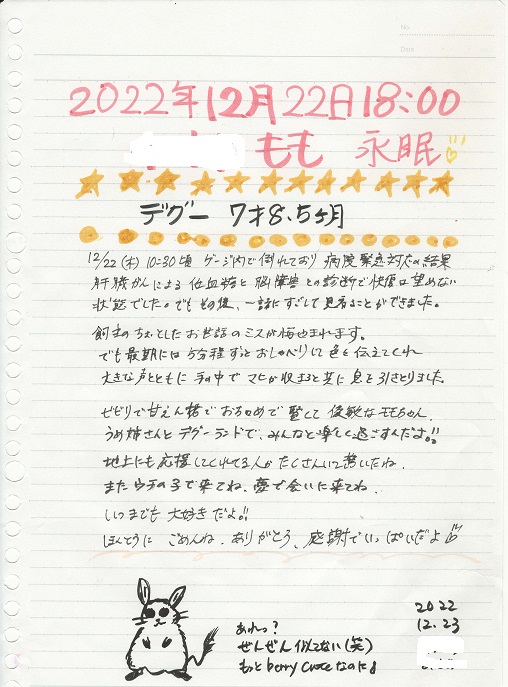 No.
Date
2022年12月22日18:00
もも 永眠
デグー 7才8.5ヶ月
12/22(木)10:30頃 ゲージ内で倒れており 病院緊急対応の結果
肝臓がんによる低血糖と脳障害との診断で快復は望めない
状態でした。でもその後、一緒にすごして見看ることができました。
飼主のちょっとしたお世話のミスが悔やまれます。
でも最期には 5分程ずっとおしゃべりして 色々伝えてくれ
大きな声とともに 手の中で マヒが収まると共に 息を引きとりました。
ビビリで甘えん坊で おちゃめで賢くて 俊敏なモモちゃん、
うめ姉さんと デグーランドで、みんなと楽しく過ごすんだよ!!
地上にも応援してくれてる人がたくさんいて 驚いたね、
また ウチの子で来てね、夢で会いに来てね、
いつまでも 大好きだよ!!
ほんとうに ごめんね、ありがとう、感謝でいっぱいだよ
あれっ?
ぜんぜん似てない(笑)
もっと berry cuteなのに
2022
12.23